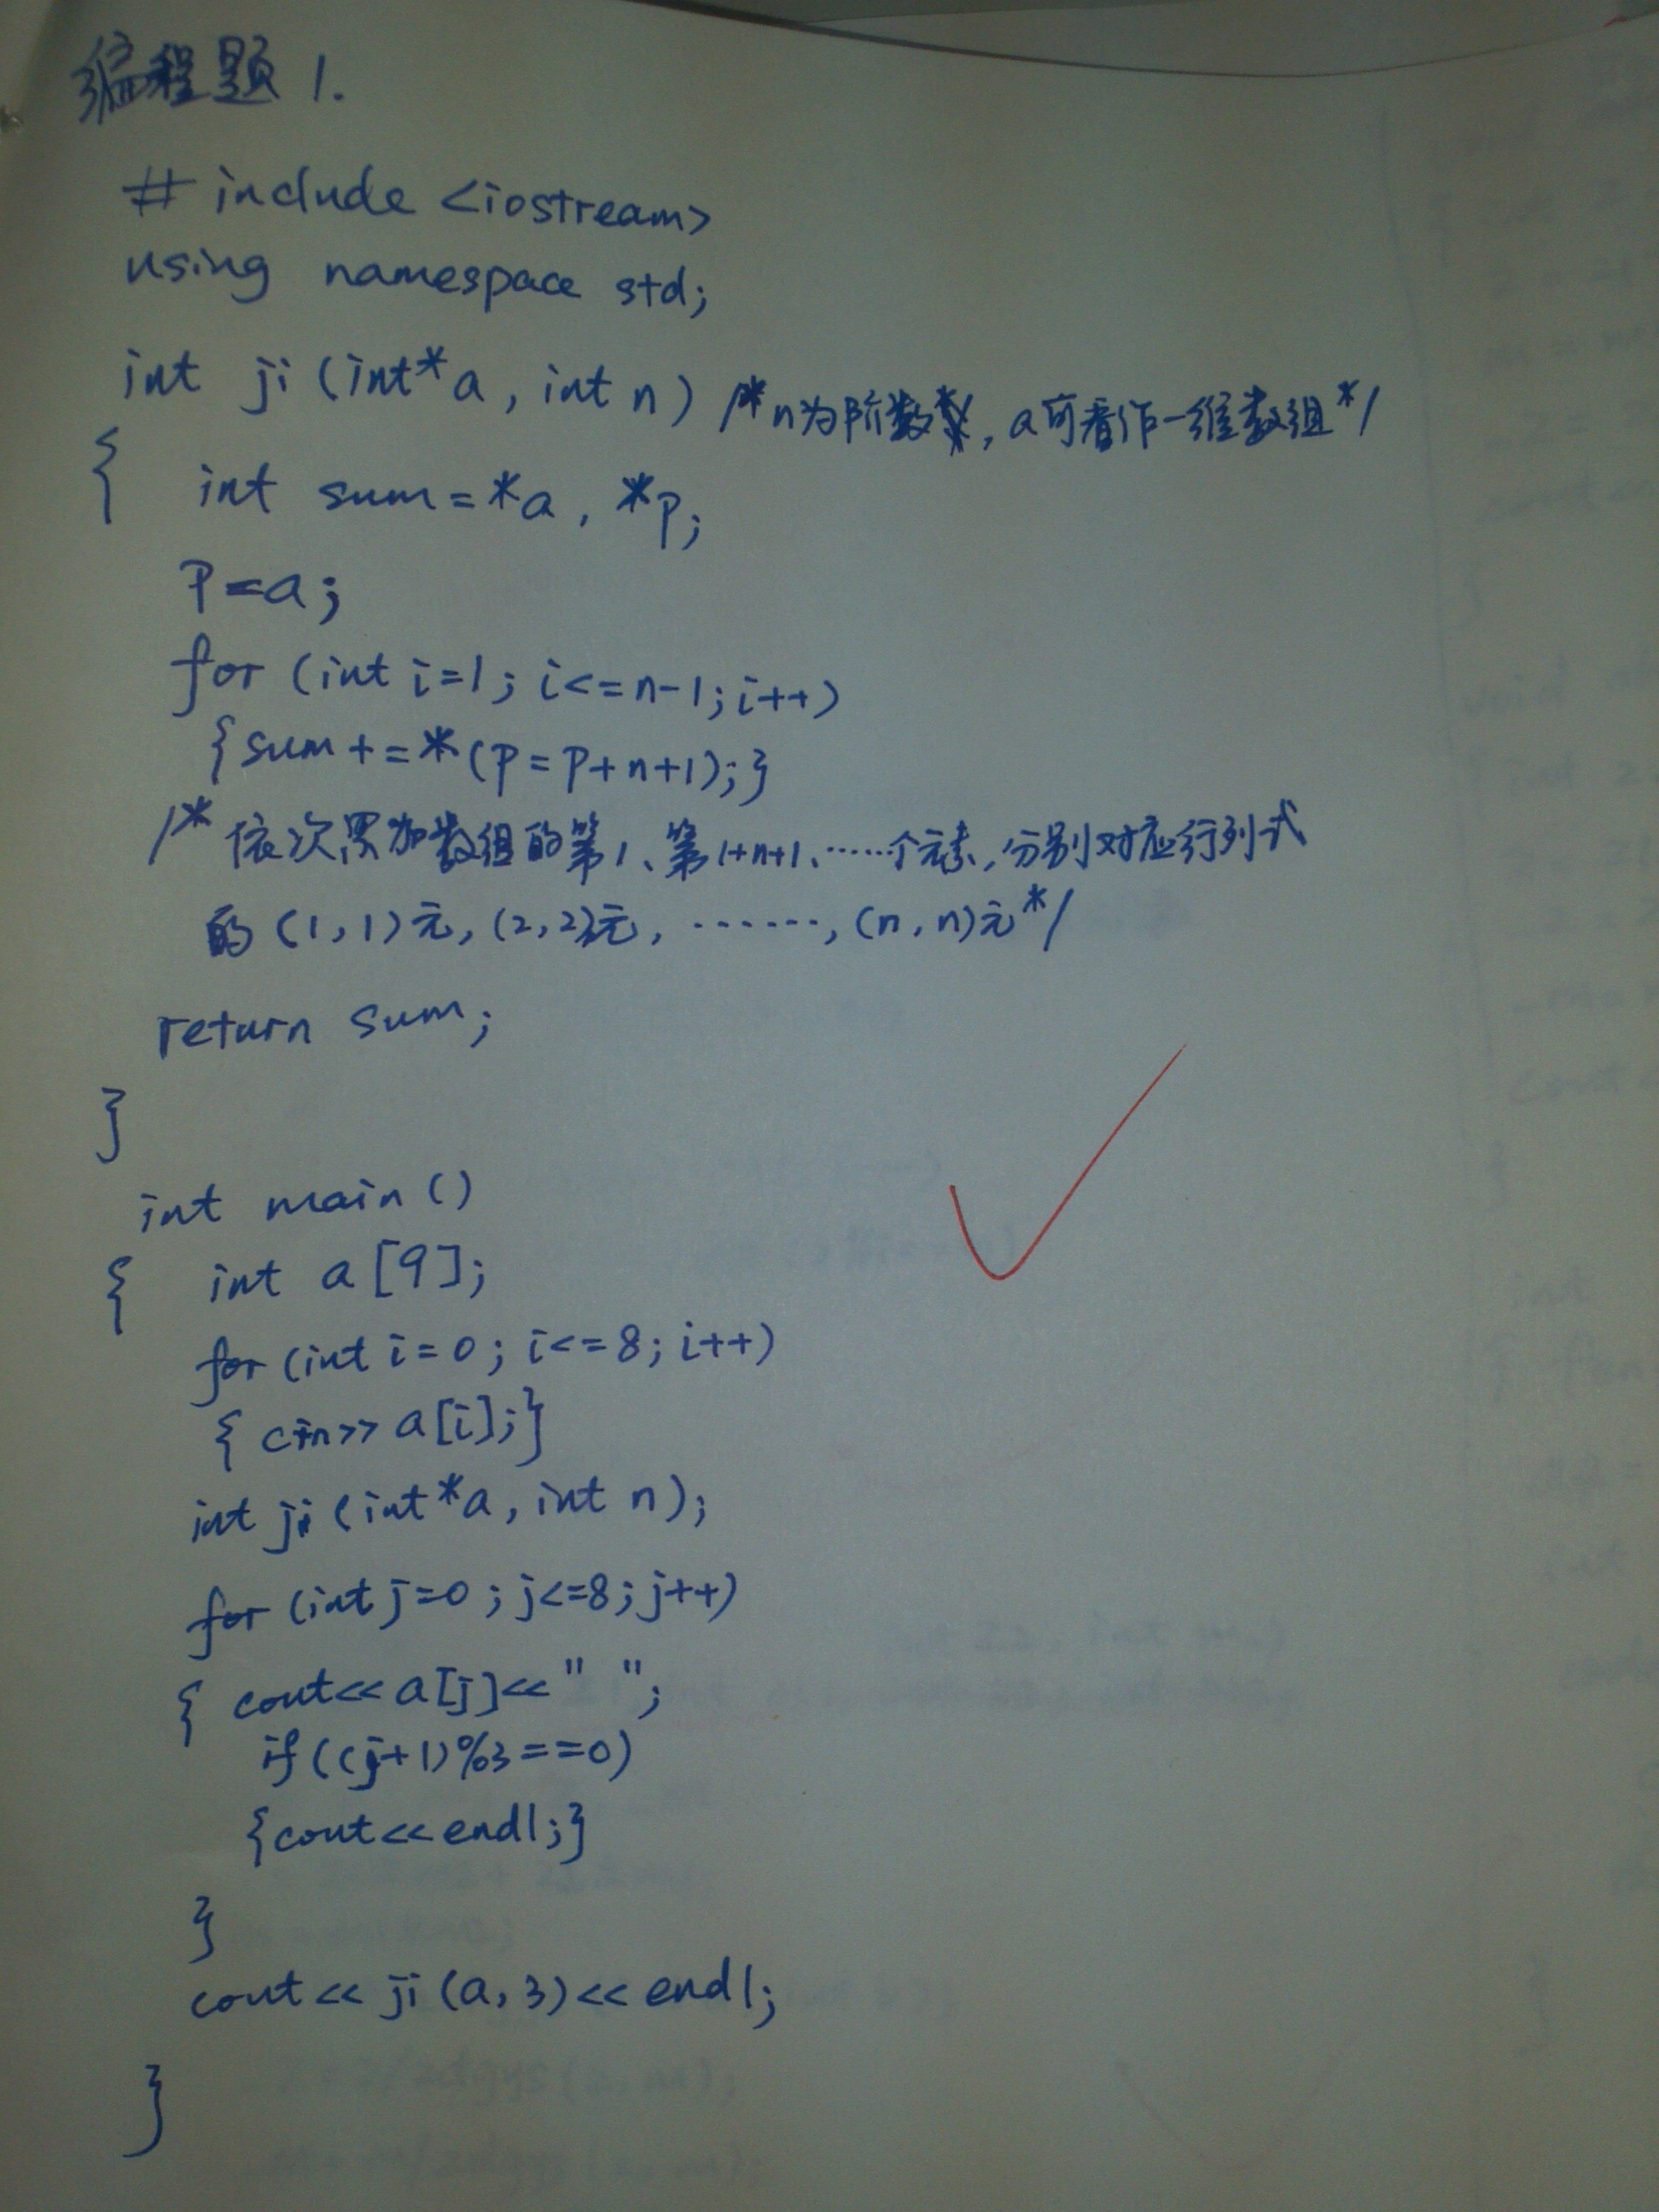 编程题 1.
# include <iostream>
using namespace std;
int ji (int* a, int n) /*n为阶数, a可看作一维数组*/
{ int sum=*a, *p;
P=a;
for (int i=1; i<=n-1; i++)
{sum+=*(P=P+n+1);}
/* 依次累加数组的第1、第1+n+1、……个元素, 分别对应行列式
的 (1,1)元, (2,2)元, ……, (n,n)元*/
return sum;
}
int main ()
{ int a [9];
for (int i=0; i<=8; i++)
{ cin>> a[i];}
int ji (int*a, int n);
for (int j=0; j<=8; j++)
{ cout<< a[j]<<" ";
if ((j+1)%3==0)
{cout<<endl;}
}
cout<< ji (a,3)<< endl;
}